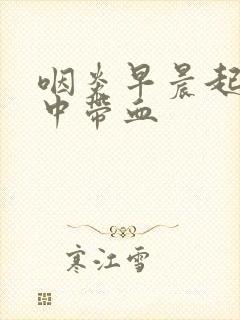 咽炎早晨起
中带血
寒江雪